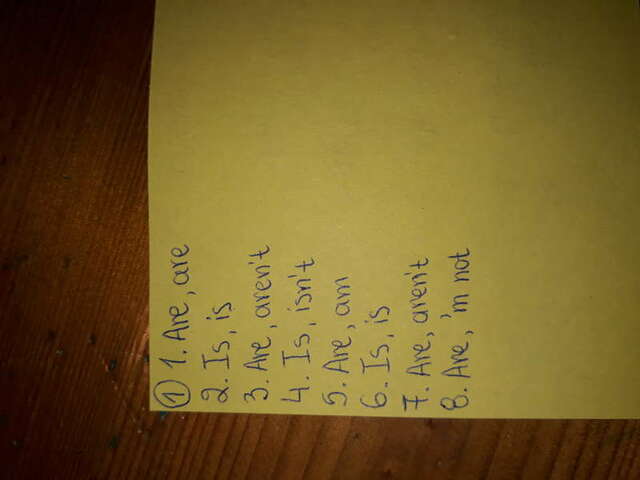 ① 1. Are, are
2. Is, is
3. Are, aren't
4. Is, isn't
5. Are, am
6. Is, is
7. Are, aren't
8. Are, 'm not